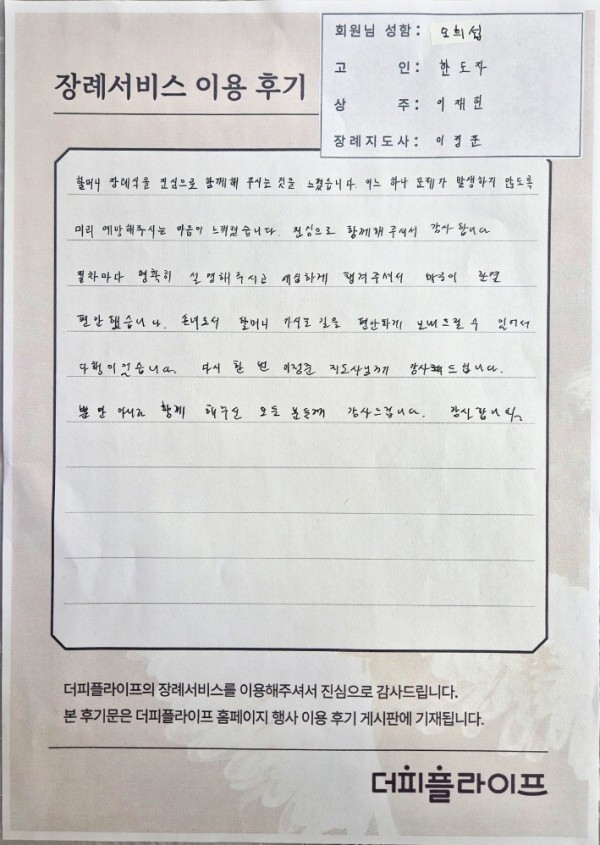 회원님 성함 : 오희섭
고 인 : 한도자
상 주 : 이재헌
장례지도사 : 이정준
장례서비스 이용 후기
할머니 장례식을 진심으로 함께해 주시는 것을 느꼈습니다. 어느 하나 문제가 발생하지 않도록
미리 예방해주시는 마음이 느껴졌습니다. 진심으로 함께해주셔서 감사합니다
절차마다 명확히 설명해주시고 세심하게 챙겨주셔서 마음이 한결
편안했습니다. 손녀로서 할머니 가시는 길을 편안하게 보내드릴 수 있어서
다행이었습니다. 다시 한 번 이정준 지도사님께 감사드립니다.
뿐만 아니라 함께 해주신 모든 분들께 감사드립니다. 감사합니다
더피플라이프의 장례서비스를 이용해주셔서 진심으로 감사드립니다.
본 후기문은 더피플라이프 홈페이지 행사 이용 후기 게시판에 기재됩니다.
더피플라이프